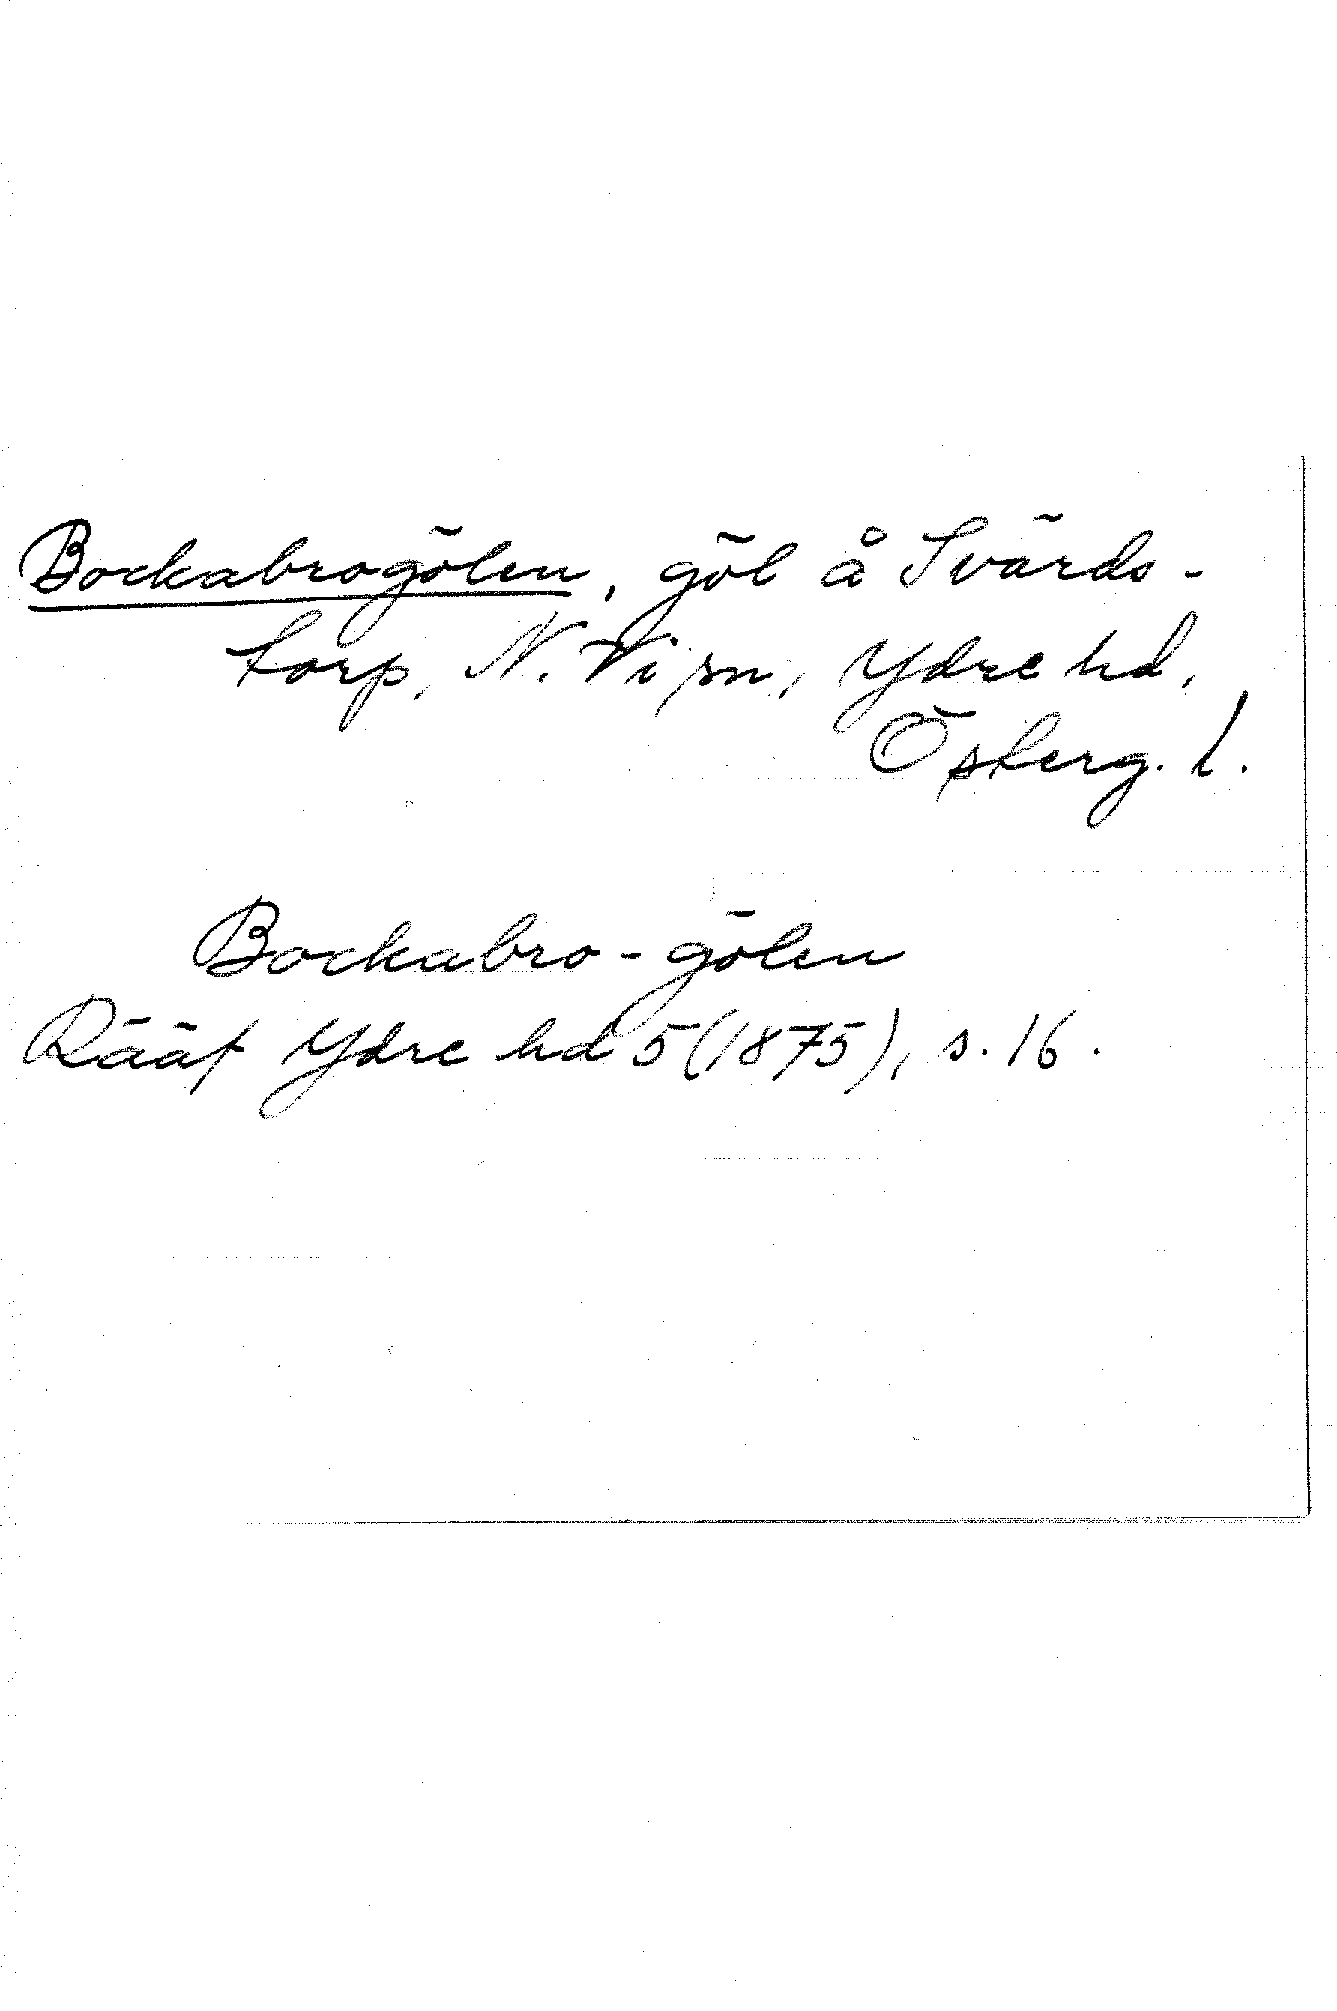 Bockabrogölen, göl å Svärds-
torp, N. Vi sn, Ydre hd,
Österg. l.
Bockabro-gölen
Rääf Ydre hd 5 (1875), s. 16.